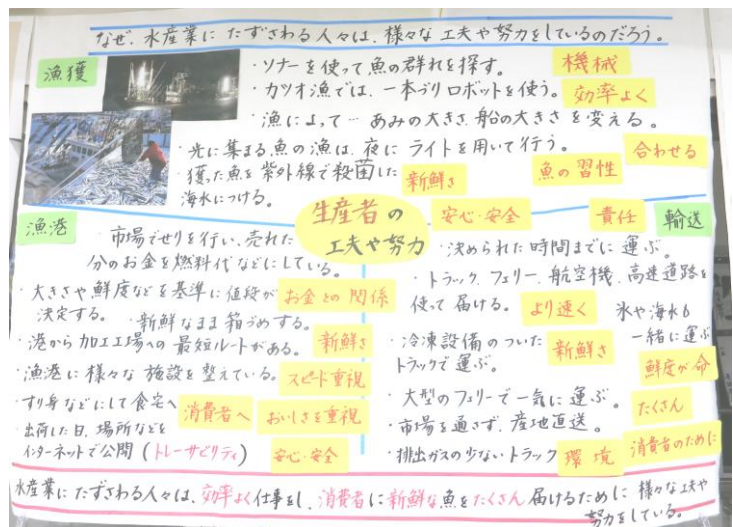 なぜ、水産業にたずさわる人々は、様々な工夫や努力をしているのだろう。
漁獲
・ソナーを使って魚の群れを探す。
機械
・カツオ漁では、一本づりロボットを使う。
効率よく
・漁によって…あみの大きさ、船の大きさを変える。
合わせる
・光に集まる魚の漁は、夜にライトを用いて行う。
魚の習性
・獲った魚を紫外線で殺菌した
海水につける。
新鮮さ
生産者の
工夫や努力
安心・安全
責任
漁港
・市場でせりを行い、売れた
分のお金を燃料代などにしている。
・大きさや鮮度などを基準に値段が
決定する。
お金との関係
・新鮮なまま箱づめする。
・港から加工工場への最短ルートがある。
新鮮さ
・漁港に様々な施設を整えている。
スピード重視
・すり身などにして食宅へ
消費者へ
おいしさを重視
・出荷した日、場所などを
インターネットで公開(トレーサビリティ)
安心・安全
輸送
・決められた時間までに運ぶ。
・トラック、フェリー、航空機、高速道路を
使って届ける。
より速く
氷や海水も
一緒に運ぶ
・冷凍設備のついた
トラックで運ぶ。
新鮮さ
鮮度が命
・大型のフェリーで一気に運ぶ。
たくさん
・市場を通さず、産地直送。
消費者のために
・排出ガスの少ないトラック
環境
水産業にたずさわる人々は、効率よく仕事をし、消費者に新鮮な魚をたくさん届けるために様々な工夫や
努力をしている。